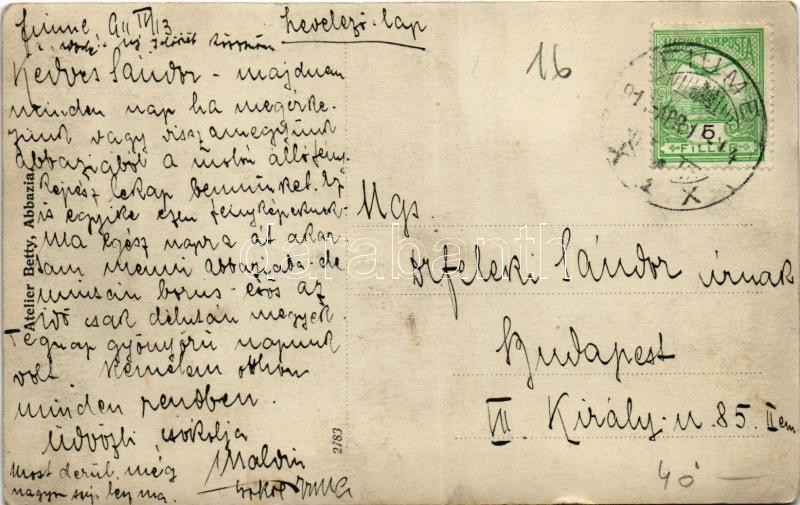 Fiume 911 IV/13
Levelező-lap
Kedves Sándor - majdnem
minden nap ha megérke-
zünk vagy visszamegyünk
Abbaziából a molón álló fény-
képész lekap bennünket. Ez
is egyike ezen fényképeknek.
Ma egész napra át akar-
tam menni Abbaziába - de
miután borus - esős az
idő csak délután megyek.
Tegnap gyönyörű napunk
volt. Remélem otthon
minden rendben.
Üdvözli csókolja
Malvin
Most derül, még
nagyon szép lesz ma.
Atelier Betty, Abbazia
2783
16
MAGYAR KIR. POSTA
5
FILLÉR
FIUME
Ngs.
dr Feleki Sándor úrnak
Budapest
VII Király-u 85. II em.
40 —
darabanth